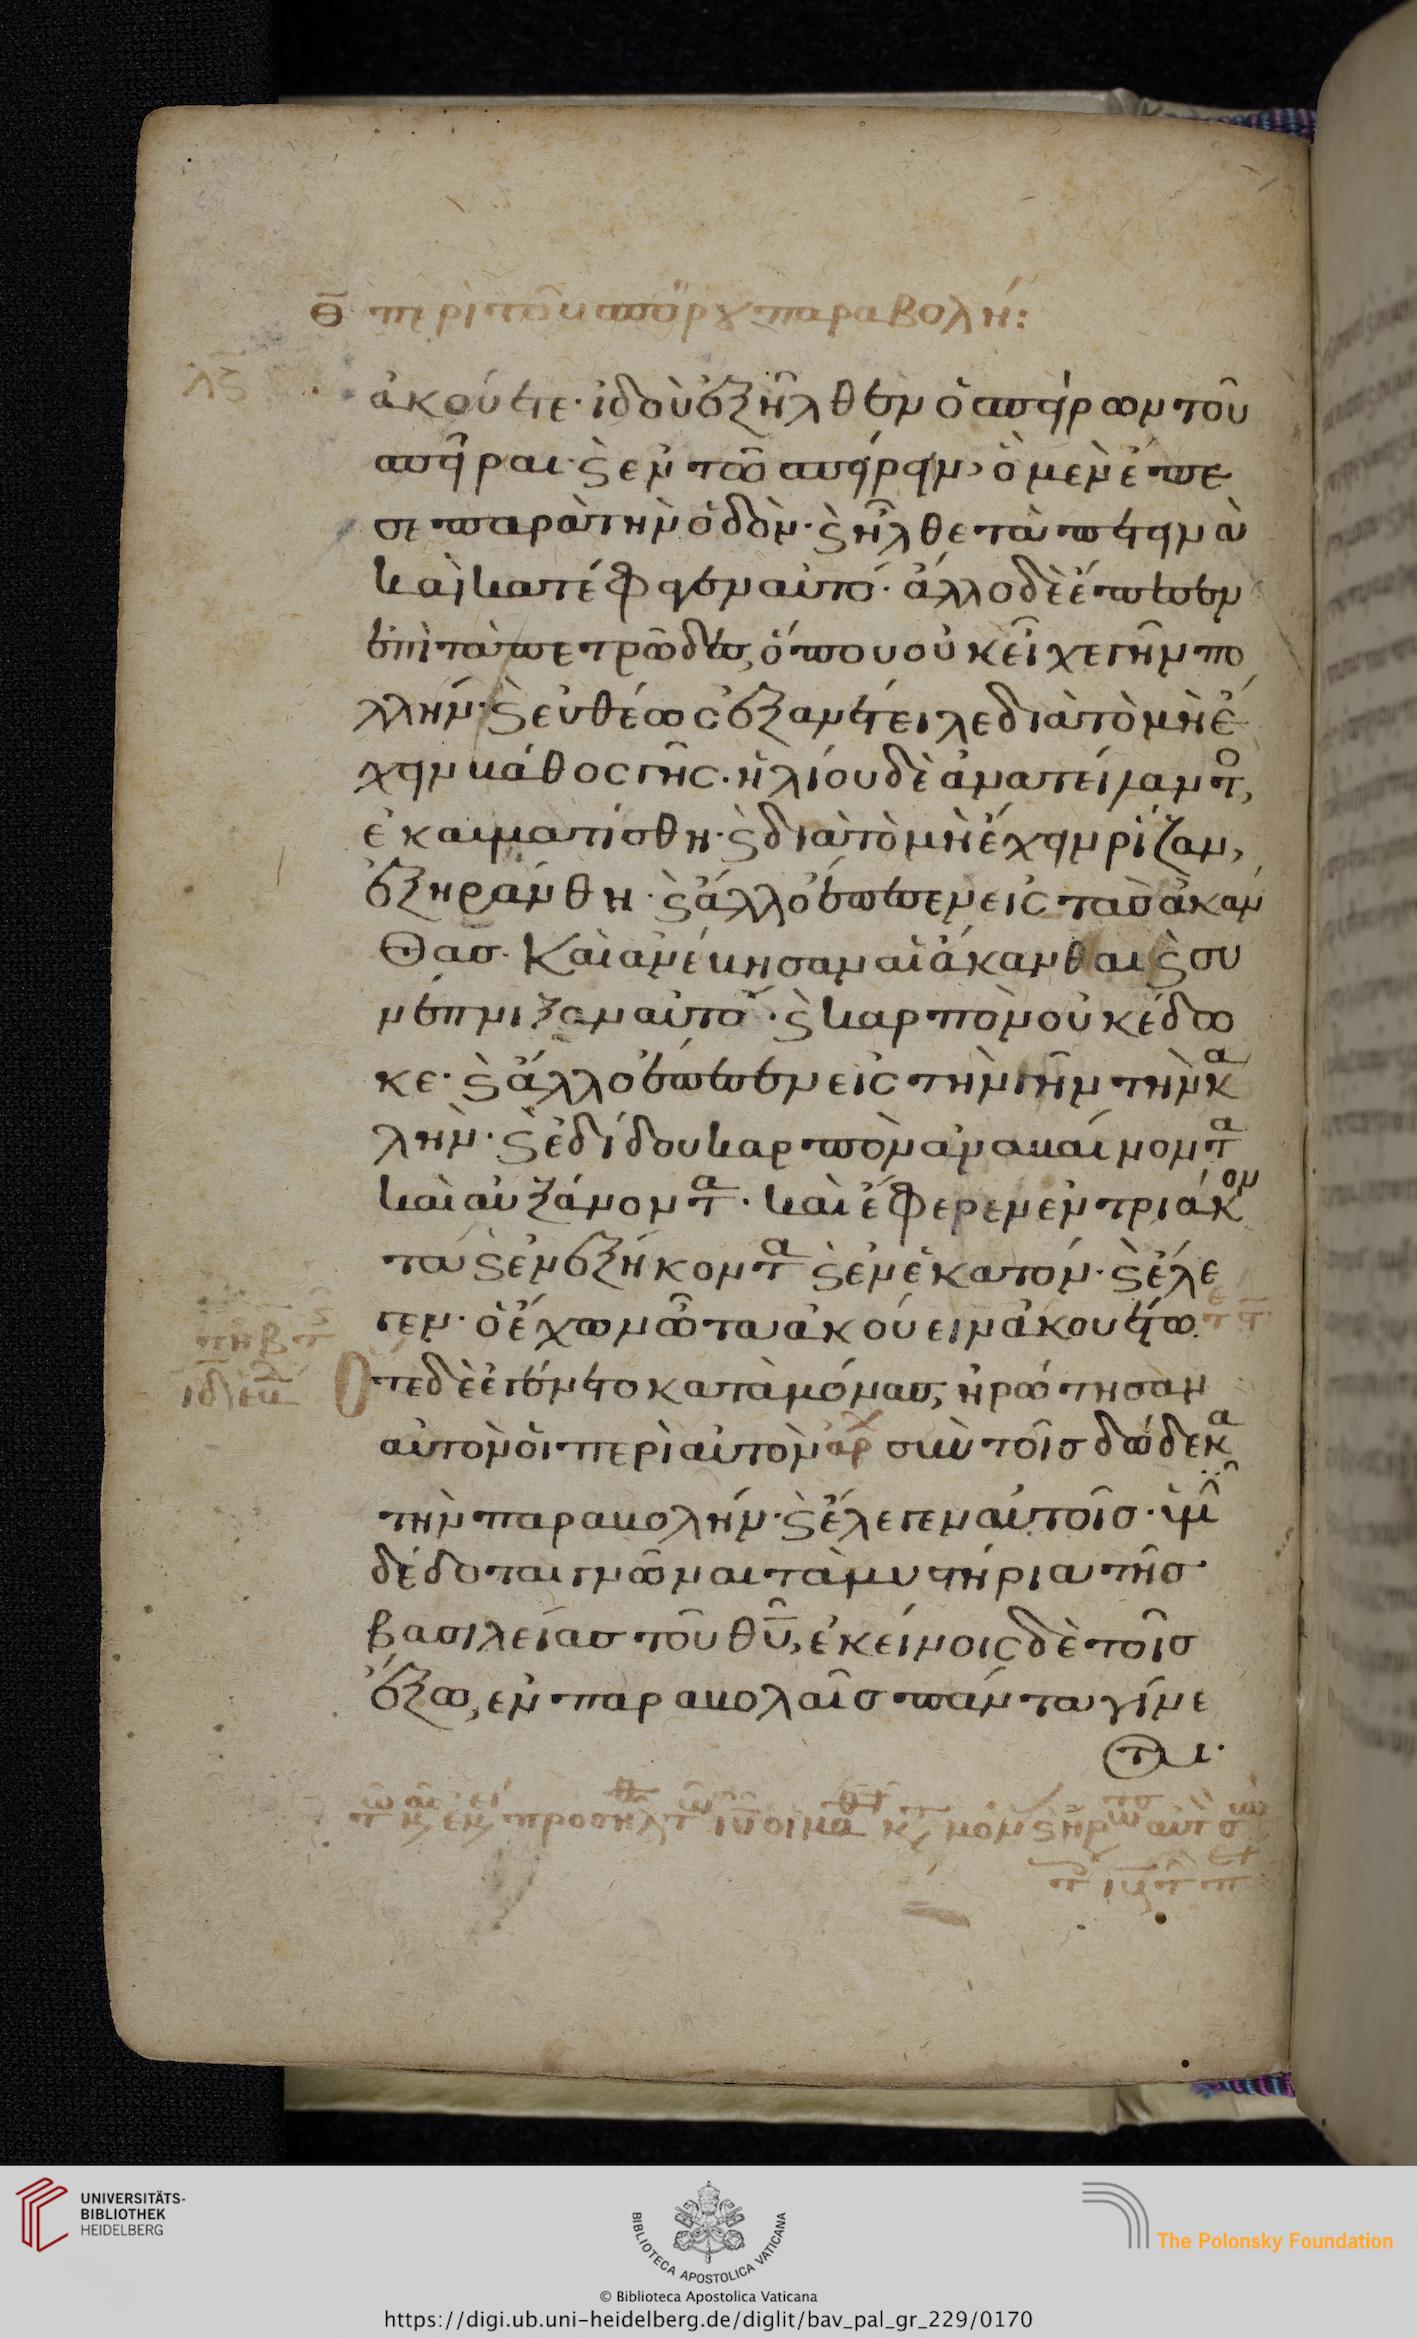 θ περὶ τοῦ σπόρου παραβολή:
λς
ἀκούετε· ἰδοὺ ἐξῆλθεν ὁ σπείρων τοῦ
σπεῖραι· ϗ ἐν τῶ σπείρειν, ὁ μὲν ἔπε
σε παρὰ τὴν ὁδὸν· ϗ ἦλθε τὰ πετεινὰ
καὶ κατέφαγεν αὐτό· ἄλλο δὲ ἔπεσεν
ἐπὶ τὰ πετρῶδες, ὅπου οὐκ εἶχε γῆν πο
λλήν· ϗ εὐθέως ἐξανέτειλε διὰ τὸ μὴ ἔ
χειν βάθος γῆς· ἡλίου δὲ ἀνατείλαντο,
ἐκαυματίσθη· ϗ διὰ τὸ μὴ ἔχειν ρίζαν,
ἐξηράνθη· ϗ ἄλλο ἔπεσεν εἰς τὰσ ἀκάν
θασ· Καὶ ἀνέβησαν αἱ ἄκανθαι ϗ συ
νέπνιξαν αὐτό· ϗ καρπὸν οὐκ έδω
κε· ϗ ἄλλο ἔπεσεν εἰς τὴν γῆν τὴν κα
λὴν· ϗ ἐδίδου καρπὸν ἀναβαίνοντα
καὶ αὐξάνοντα· καὶ ἔφερεν ἐν τριάκον
τα ϗ ἐν ἐξήκοντα ϗ ἐν ἑκατόν· ϗ ἔλε
γεν· ὁ ἔχων ὦτα ἀκούειν ἀκουέτω
Ὅτε δὲ ἐγένετο κατὰ μόνας, ἠρώτησαν
αὐτὸν ὁι περὶ αὐτὸν ἀρχ σὺν τοῖσ δώδεκα
τὴν παραβολήν· ϗ ἔλεγεν αὐτοῖσ· ὑμῖ
δέδοται γνῶναι τὰ μυστήρια τῆσ
βασιλείασ τοῦ θῦ, ἐκείνοις δὲ τοῖσ
ἔξω, ἐν παραβολαῖσ πάντα γίνε
ται·
UNIVERSITÄTS-
BIBLIOTHEK
HEIDELBERG
BIBLIOTECA APOSTOLICA VATICANA
The Polonsky Foundation
© Biblioteca Apostolica Vaticana
https://digi.ub.uni-heidelberg.de/diglit/bav_pal_gr_229/0170